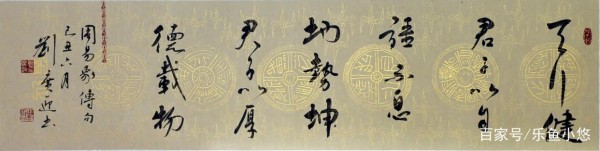 天行健
君子以自
强不息
地势坤
君子以厚
德载物
周易象傳句
己丑六月
劉廣迎书
百家号/乐鱼小悠